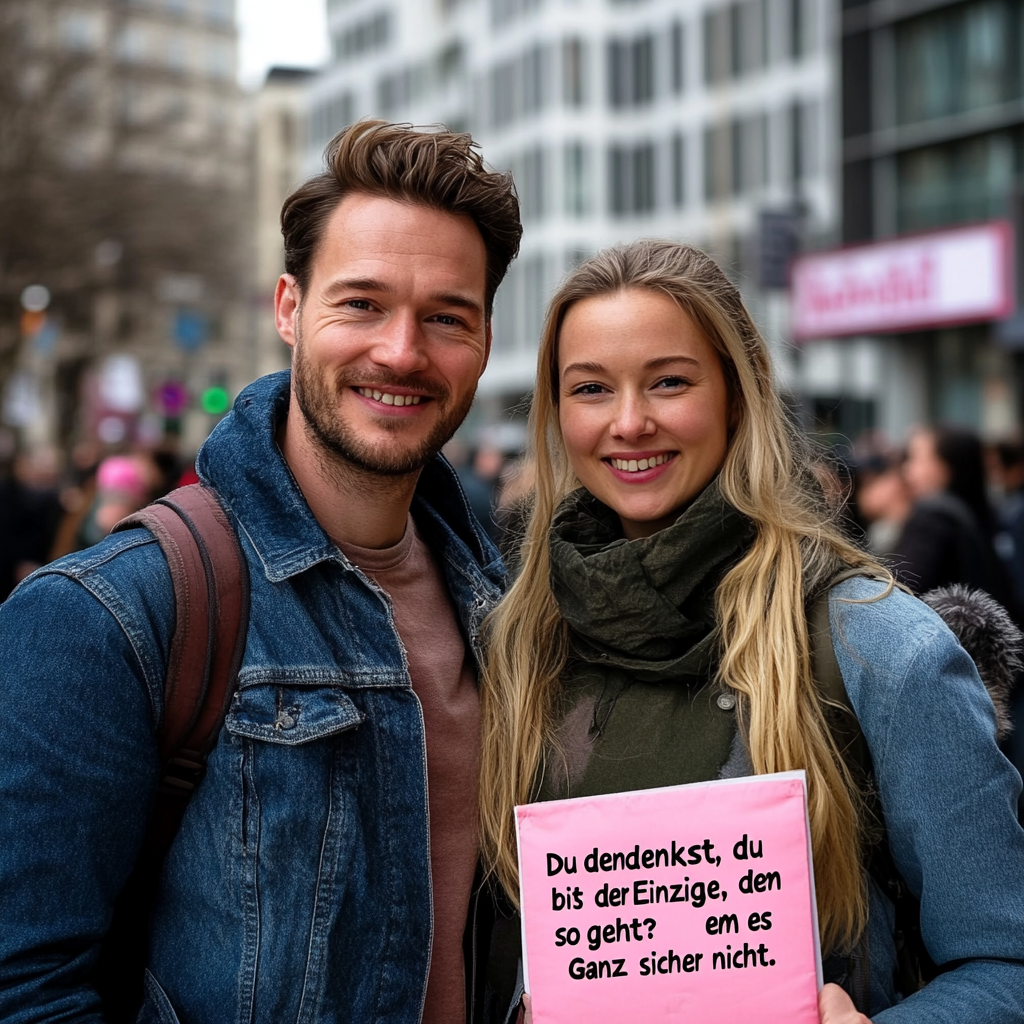 Du dendenkst, du
bis der Einzige, den
so geht? em es
Ganz sicher nicht.